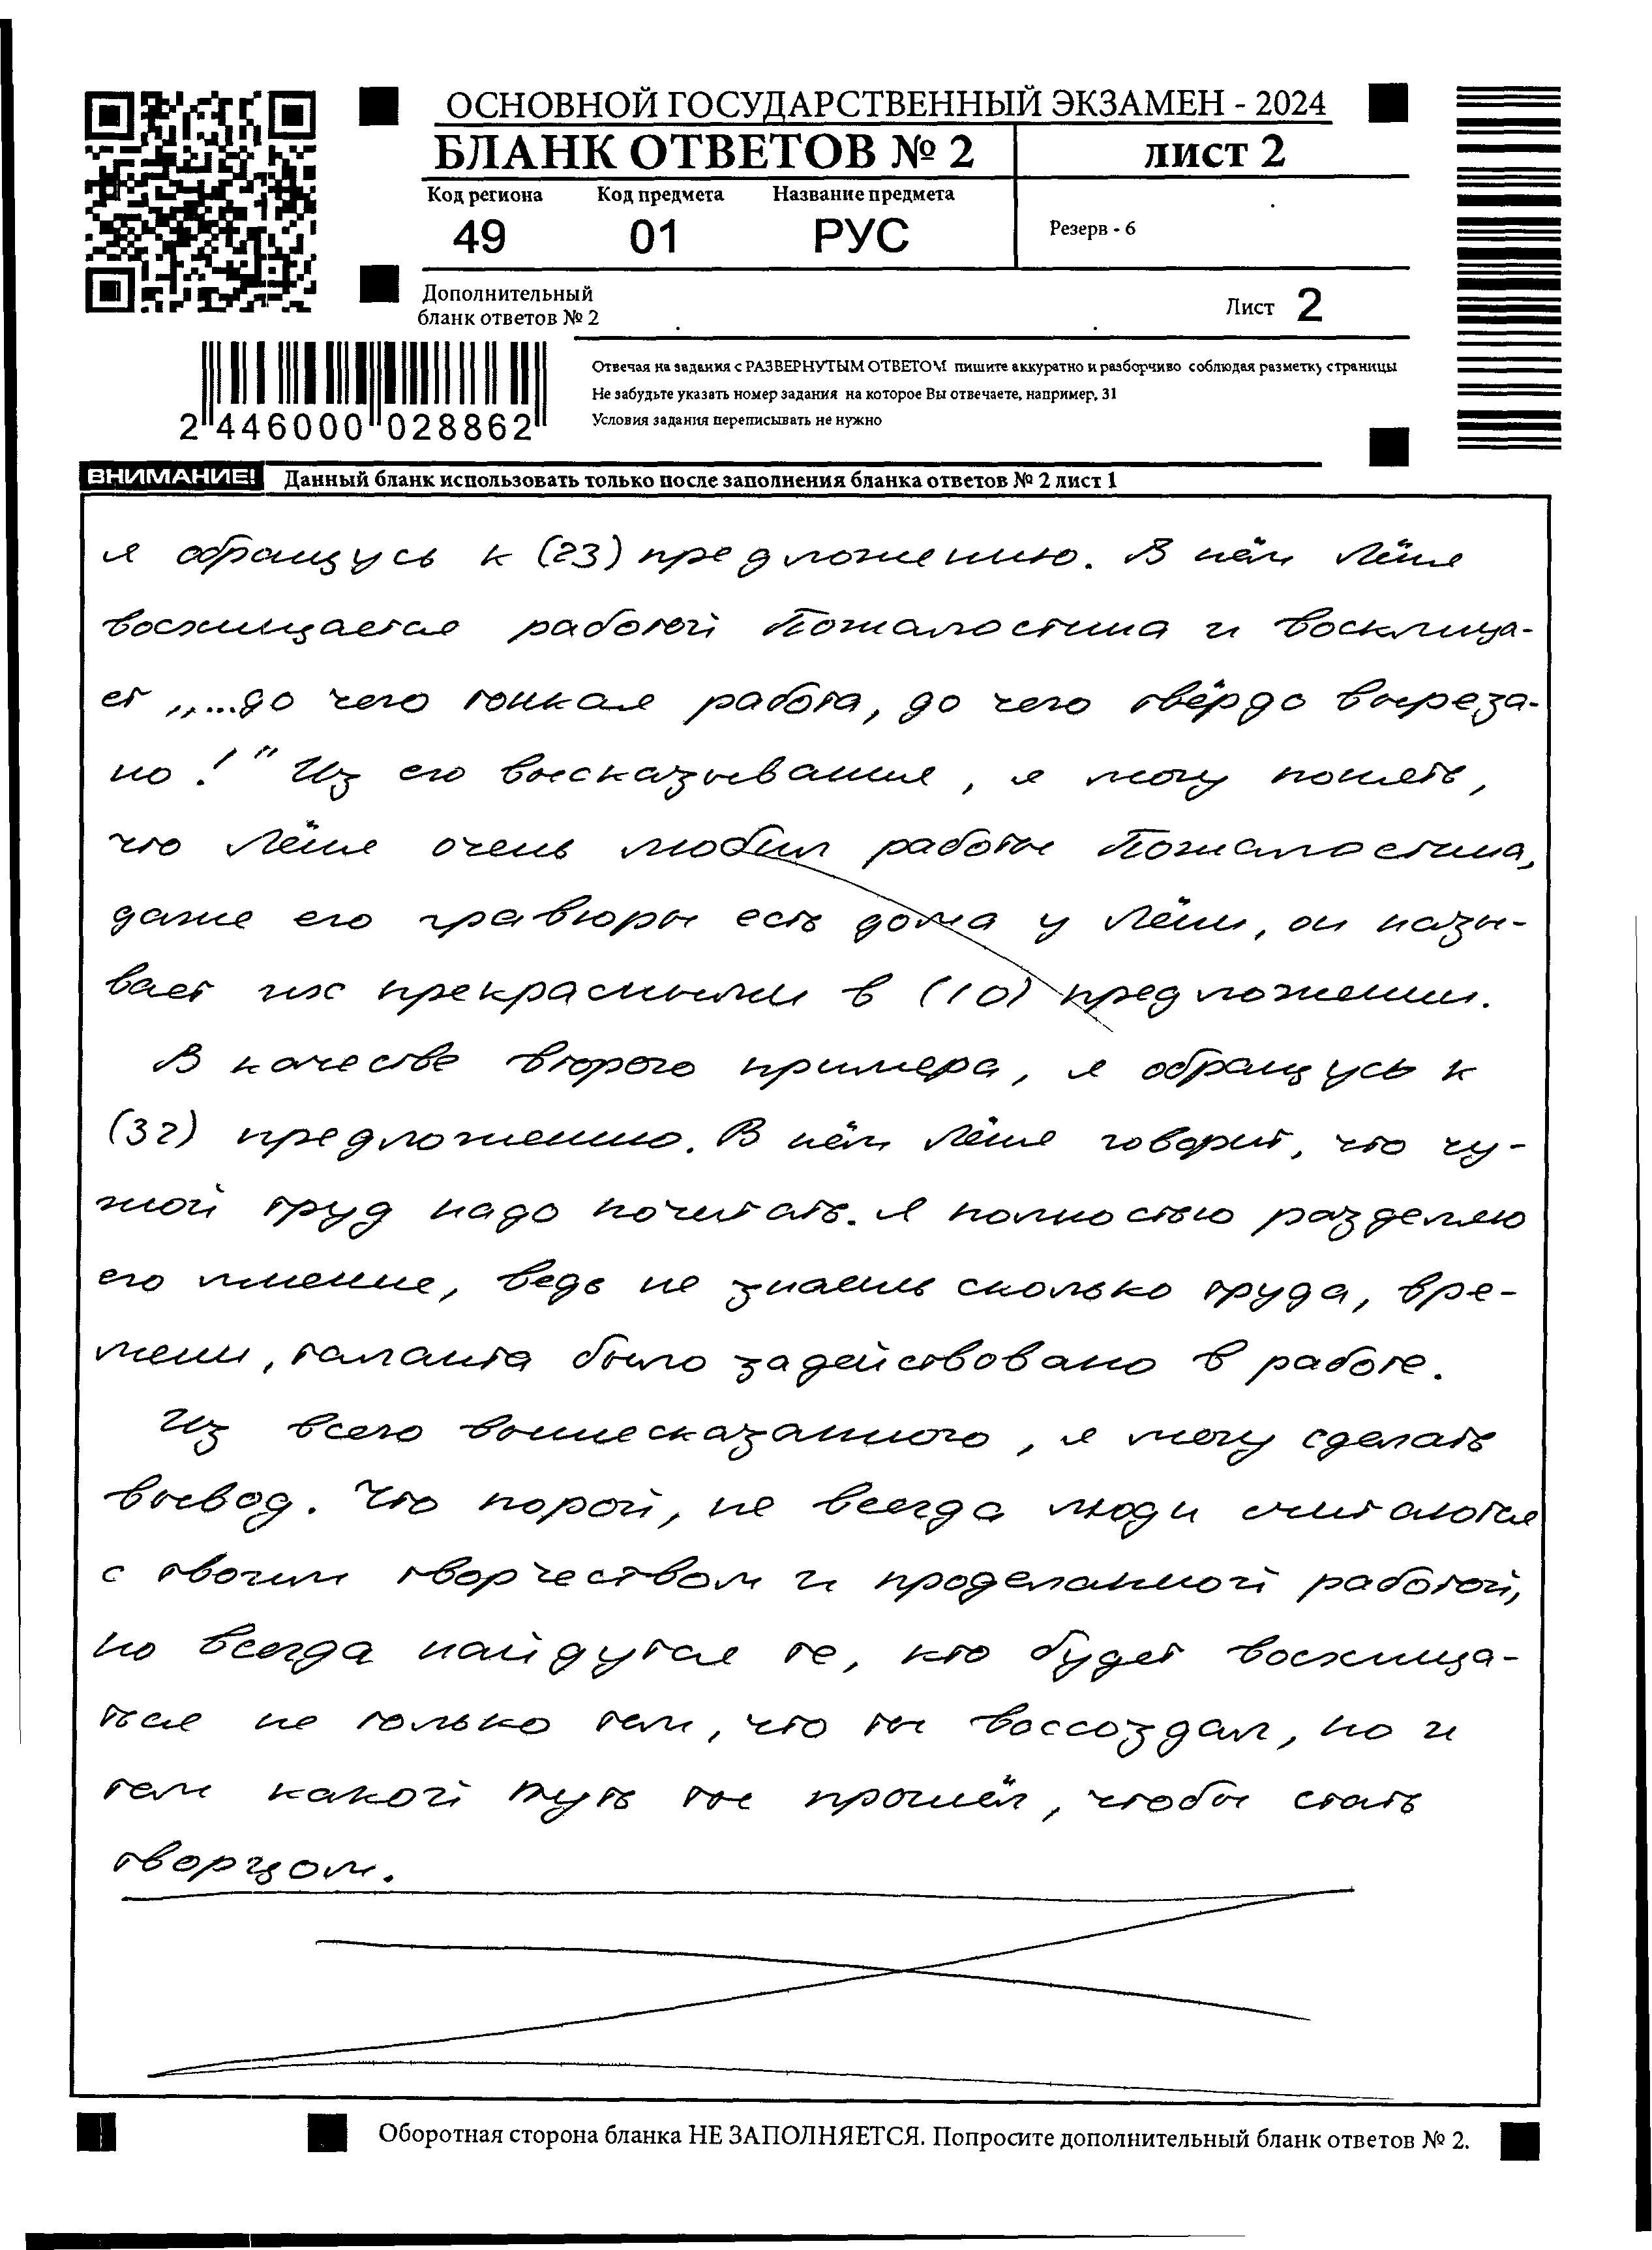 ОСНОВНОЙ ГОСУДАРСТВЕННЫЙ ЭКЗАМЕН - 2024
БЛАНК ОТВЕТОВ № 2
ЛИСТ 2
Код региона Код предмета Название предмета
49 01 РУС
Резерв - 6
Дополнительный
бланк ответов № 2
Лист 2
Отвечая на задания с РАЗВЕРНУТЫМ ОТВЕТОМ пишите аккуратно и разборчиво соблюдая разметку страницы
Не забудьте указать номер задания на которое Вы отвечаете, например, 31
Условия задания переписывать не нужно
2 446000 028862
ВНИМАНИЕ! Данный бланк использовать только после заполнения бланка ответов № 2 лист 1
я обращусь к (23) предложению. В нём Лёня
восхищается работой Пожалостина и восклица-
ет „...до чего тонкая работа, до чего твёрдо выреза-
но!" Из его высказывания, я могу понять,
что Лёня очень любил работы Пожалостина,
даже его гравюры есть дома у Лёни, он назы-
вает их прекрасными в (10) предложении.
В качестве второго примера, я обращусь к
(32) предложению. В нём Лёня говорит, что чу-
жой труд надо почитать. Я полностью разделяю
его мнение, ведь не знаешь сколько труда, вре-
мени, таланта было задействовано в работе.
Из всего вышесказанного, я могу сделать
вывод. Что порой, не всегда люди считаются
с твоим творчеством и проделанной работой,
но всегда найдутся те, кто будет восхища-
ться не только тем, что ты воссоздал, но и
тем какой путь ты прошёл, чтобы стать
творцом.
Оборотная сторона бланка НЕ ЗАПОЛНЯЕТСЯ. Попросите дополнительный бланк ответов № 2.